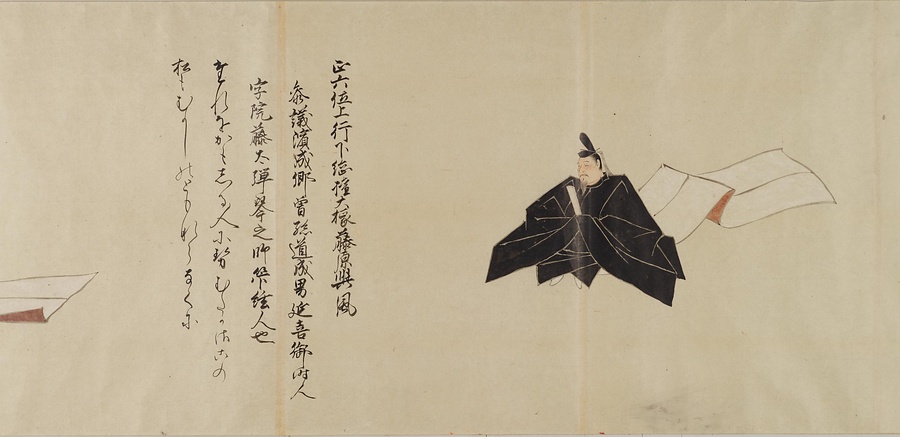 正六位上行下総権大掾藤原興風
参議濱成卿曾孫道成男延喜御時人
字院藤太弾琴之師管絃人也
たれをかもしる人にせむたかさこの
松もむかしのともならなくに